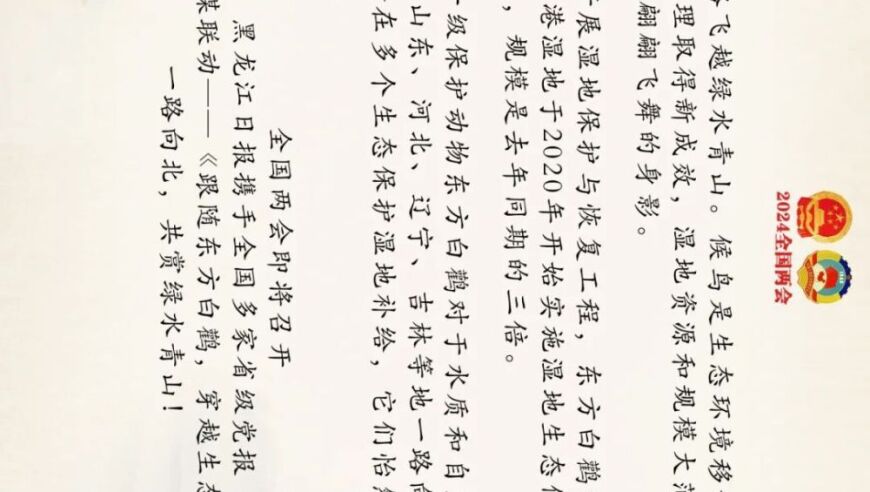 2024全国两会
飞越绿水青山。候鸟是生态环境移
理取得新成效，湿地资源和规模大
翩翩飞舞的身影。
展湿地保护与恢复工程，东方白鹳
港湿地于2020年开始实施湿地生态
，规模是去年同期的三倍。
一级保护动物东方白鹳对于水质和自
山东、河北、辽宁、吉林等地一路向
在多个生态保护湿地补给，它们怡
全国两会即将召开
黑龙江日报携手全国多家省级党报
媒联动——《跟随东方白鹳，穿越生态
一路向北，共赏绿水青山！